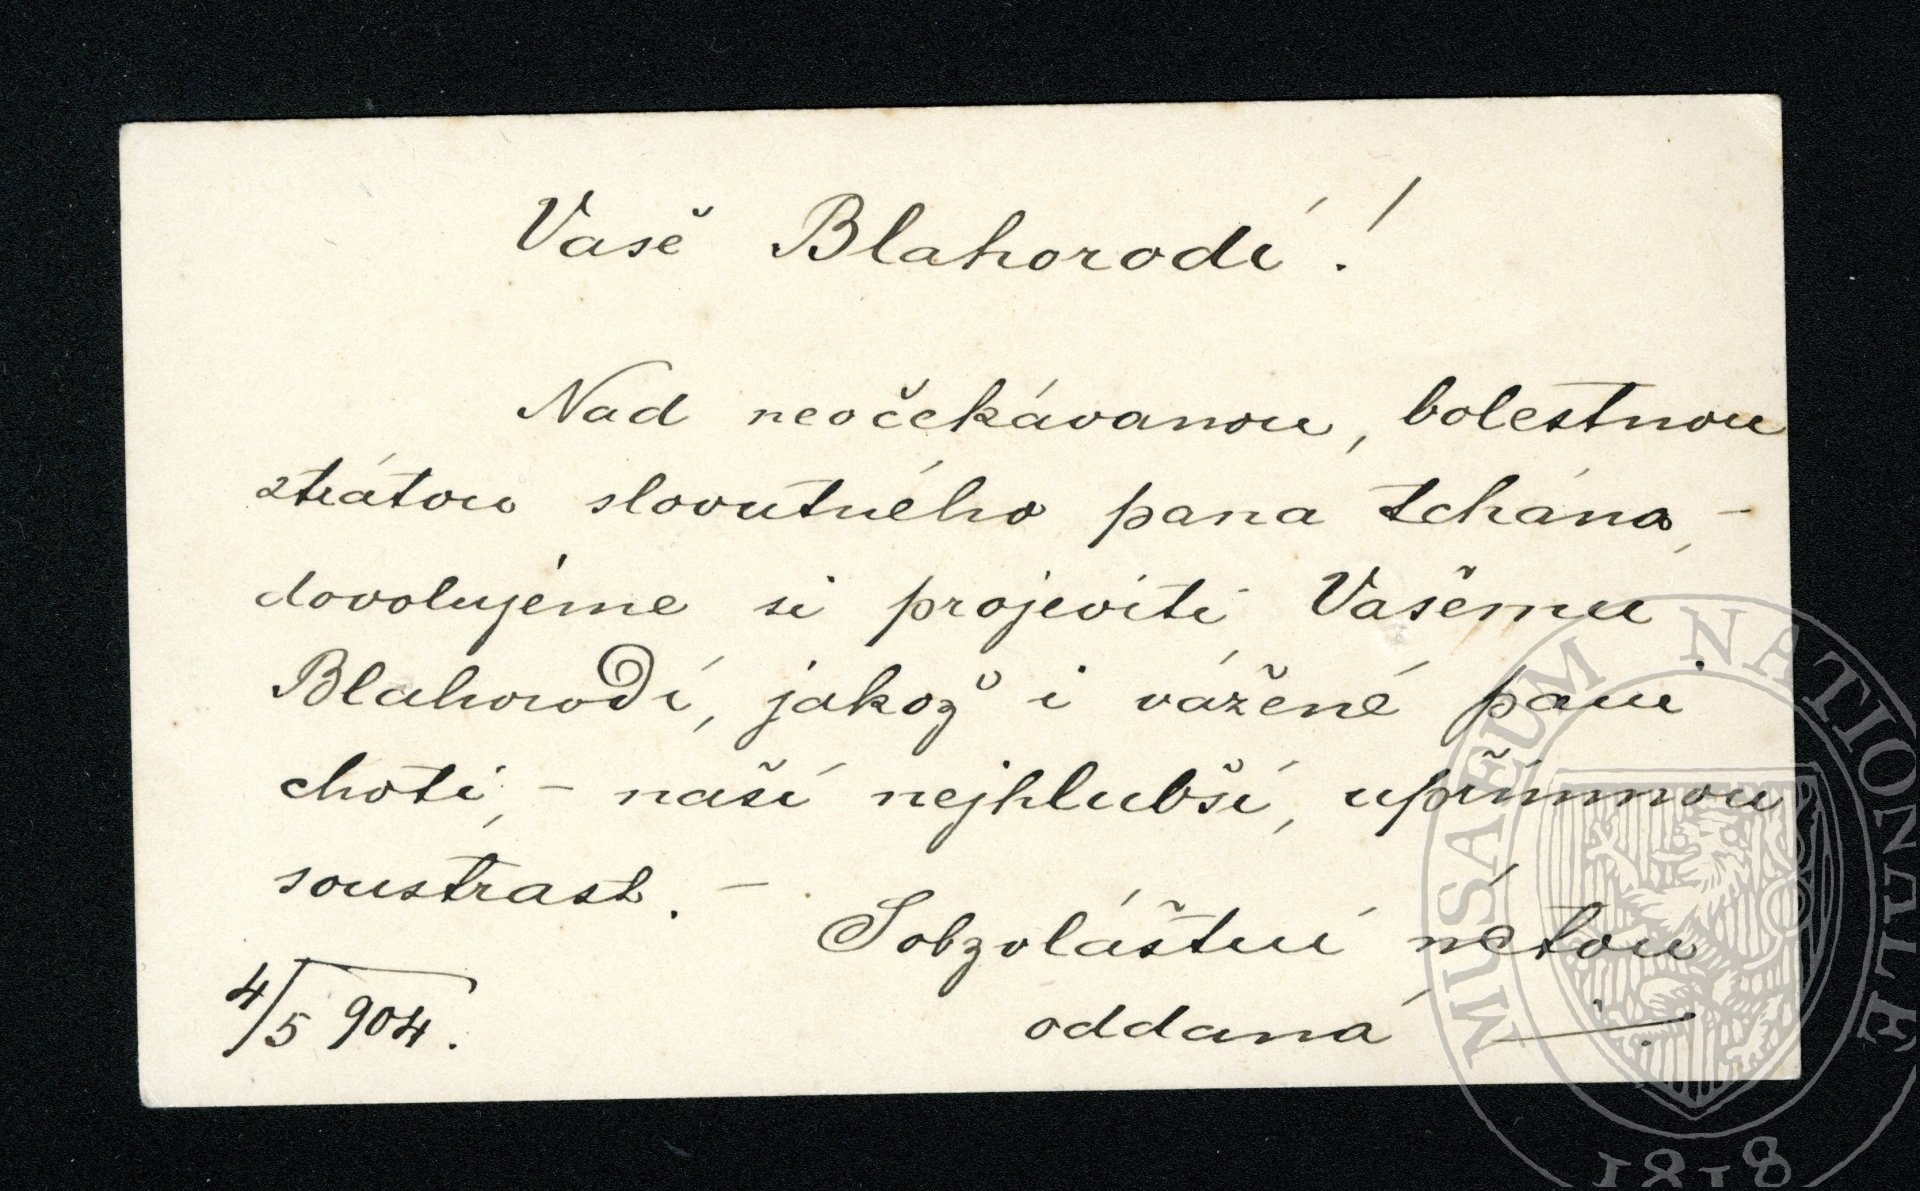 Vaše Blahorodí!
Nad neočekávanou, bolestnou
ztrátou slovutného pana tchána, –
dovolujeme si projeviti Vašemu
Blahorodí, jakož i vážené paní
choti, – naší nejhlubší, upřímnou
soustrast. –
S obzvláštní úctou
4/5 904.
oddaná
MUSAEUM NATIONALE
1818